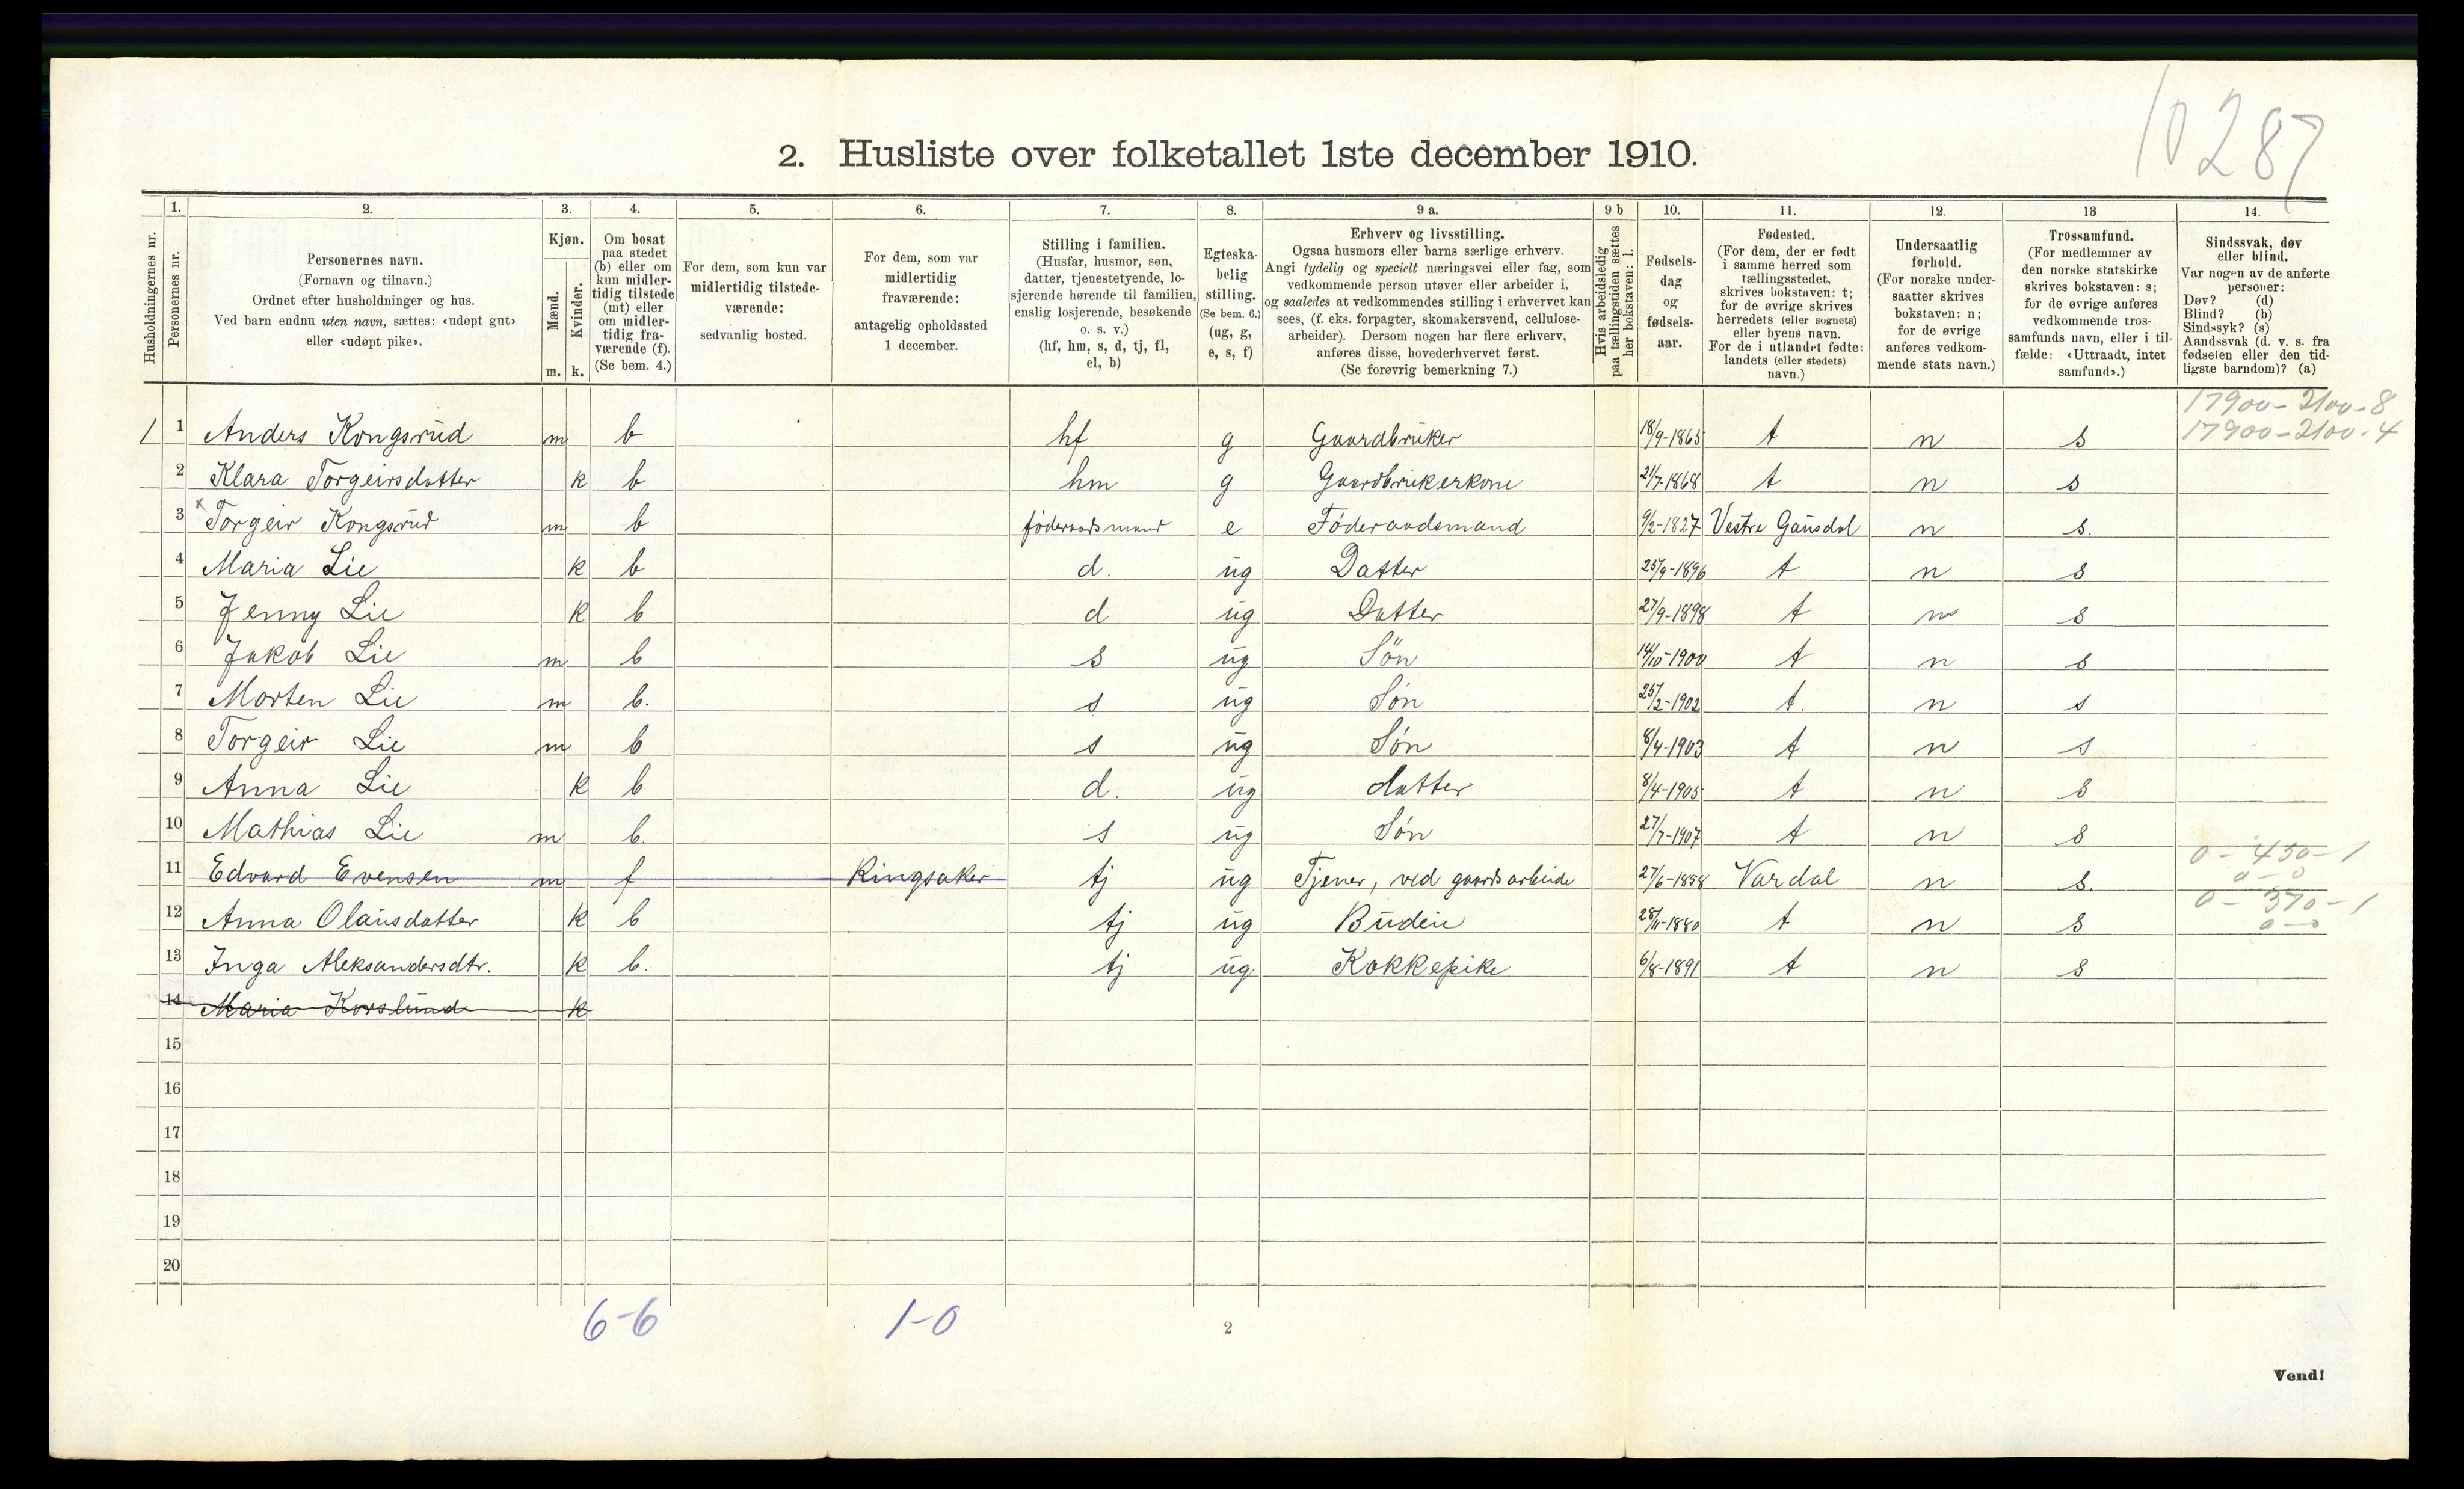 10287
2. Husliste over folketallet 1ste december 1910.
Husholdningernes nr.
1.
Personernes nr.
2.
Personernes navn.
(Fornavn og tilnavn.)
Ordnet efter husholdninger og hus.
Ved barn endnu uten navn, sættes: «udøpt gut»
eller «udøpt pike».
3.
Kjøn.
Mænd.
Kvinder.
m. k.
4.
Om bosat
paa stedet
(b) eller om
kun midler-
tidig tilstede
(mt) eller
om midler-
tidig fra-
værende (f).
(Se bem. 4.)
5.
For dem, som kun var
midlertidig tilstede-
værende:
sedvanlig bosted.
6.
For dem, som var
midlertidig
fraværende:
antagelig opholdssted
1 december.
7.
Stilling i familien.
(Husfar, husmor, søn,
datter, tjenestetyende, lo-
sjerende hørende til familien,
enslig losjerende, besøkende
o. s. v.)
(hf, hm, s, d, tj, fl,
el, b)
8.
Egteska-
belig
stilling.
(Se bem. 6.)
(ug, g,
e, s, f)
9 a.
Erhverv og livsstilling.
Ogsaa husmors eller barns særlige erhverv.
Angi tydelig og specielt næringsvei eller fag, som
vedkommende person utøver eller arbeider i,
og saaledes at vedkommendes stilling i erhvervet kan
sees, (f. eks. forpagter, skomakersvend, cellulose-
arbeider). Dersom nogen har flere erhverv,
anføres disse, hovederhvervet først.
(Se forøvrig bemerkning 7.)
9 b
Hvis arbeidsledig
paa tællingstiden sættes
her bokstaven: l.
10.
Fødsels-
dag
og
fødsels-
aar.
11.
Fødested.
(For dem, der er født
i samme herred som
tællingsstedet,
skrives bokstaven: t;
for de øvrige skrives
herredets (eller sognets)
eller byens navn.
For de i utlandet fødte:
landets (eller stedets)
navn.)
12.
Undersaatlig
forhold.
(For norske under-
saatter skrives
bokstaven: n;
for de øvrige
anføres vedkom-
mende stats navn.)
13
Trossamfund.
(For medlemmer av
den norske statskirke
skrives bokstaven: s;
for de øvrige anføres
vedkommende tros-
samfunds navn, eller i til-
fælde: «Uttraadt, intet
samfund».)
14.
Sindssvak, døv
eller blind.
Var nogen av de anførte
personer:
Døv? (d)
Blind? (b)
Sindssyk? (s)
Aandssvak (d. v. s. fra
fødselen eller den tid-
ligste barndom)? (a)
17900-2100-8
1 1 Anders Kongsrud m b hf g Gaardbruker 18/9-1865 t n s 17900-2100-4
2 Klara Torgeirsdatter k b hm g Gaardbrukerkone 21/7-1868 t n s
3 x Torgeir Kongsrud m b føderaadsmand e Føderaadsmand 9/2-1827 Vestre Gausdal n s.
4 Maria Lie k b d. ug Datter 25/9-1896 t n s
5 Jenny Lie k b d ug Datter 27/9-1898 t n s
6 Jakob Lie m b s ug Søn 14/10-1900 t n s
7 Morten Lie m b. s ug Søn 25/2-1902 t. n s
8 Torgeir Lie m b s ug Søn 8/4-1903 t n s
9 Anna Lie k b d. ug datter 8/4-1905 t n s
10 Mathias Lie m b. s ug Søn 27/7-1907 t n s
0-450-1
11 Edvard Evensen m f Ringsaker tj ug Tjener, ved gaardsarbeide 27/6-1858 Vardal n s. 0-0
0-370-1
12 Anna Olausdatter k b tj ug Budeie 28/11-1880 t n s 0-0
13 Inga Aleksandersdtr. k b. tj ug Kokkepike 6/8-1891 t n s
14 Maria Korslunde k
15
16
17
18
19
20
6-6 1-0
2
Vend!